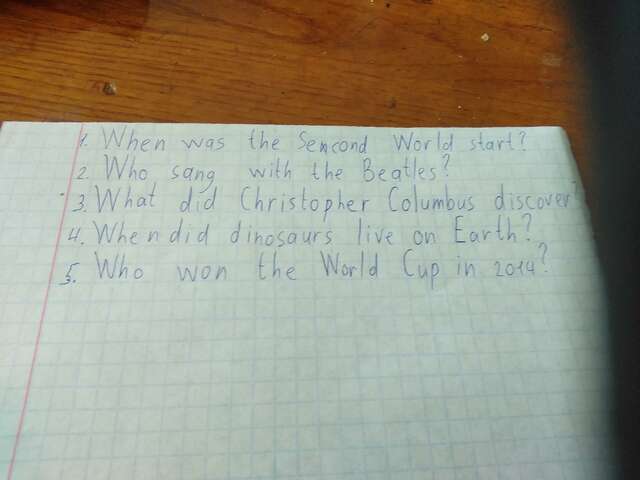 1. When was the Sencond World start?
2. Who sang with the Beatles?
3. What did Christopher Columbus discover?
4. When did dinosaurs live on Earth?
5. Who won the World Cup in 2014?